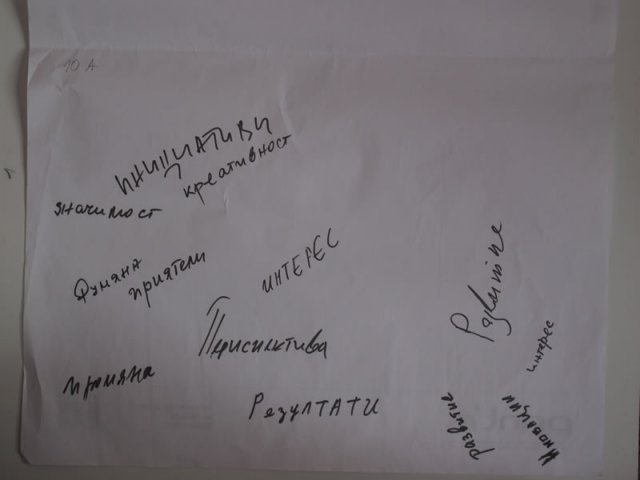 10 А
ИНИЦИАТИВИ
креативност
значимост
приятели
ИНТЕРЕС
Развитие
Перспектива
интерес
промяна
РЕЗУЛТАТИ
развитие
Иновации